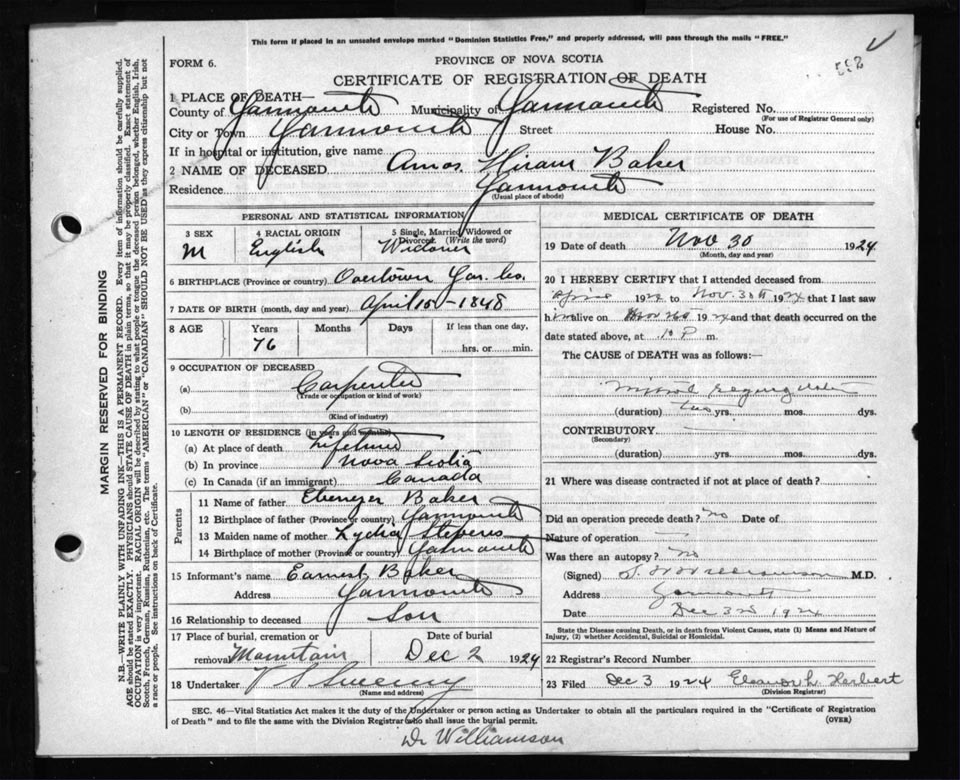 This form if placed in an unsealed envelope marked "Dominion Statistics Free," and properly addressed, will pass through the mails "FREE."
FORM 6.
PROVINCE OF NOVA SCOTIA
CERTIFICATE OF REGISTRATION OF DEATH
1 PLACE OF DEATH—
County of Yarmouth Municipality of Yarmouth Registered No.
(For use of Registrar General only)
City or Town Yarmouth Street House No.
If in hospital or institution, give name
2 NAME OF DECEASED Amos Hiram Baker
Residence Yarmouth
(Usual place of abode)
PERSONAL AND STATISTICAL INFORMATION
3 SEX 4 RACIAL ORIGIN 5 Single, Married, Widowed or Divorced. (Write the word)
M English Widower
6 BIRTHPLACE (Province or country) Overtown Yar. Co.
7 DATE OF BIRTH (month, day and year) April 15 - 1848
8 AGE Years Months Days If less than one day,
76 hrs. or min.
9 OCCUPATION OF DECEASED
(a) Carpenter
(Trade or occupation or kind of work)
(b)
(Kind of industry)
10 LENGTH OF RESIDENCE (in years and months)
(a) At place of death Lifetime
(b) In province Nova Scotia
(c) In Canada (if an immigrant) Canada
Parents
11 Name of father Ebenezer Baker
12 Birthplace of father (Province or country) Yarmouth
13 Maiden name of mother Lydia Stevens
14 Birthplace of mother (Province or country) Yarmouth
15 Informant's name Earnest Baker
Address Yarmouth
16 Relationship to deceased Son
17 Place of burial, cremation or Date of burial
removal Mountain Dec 2 1924
18 Undertaker V S Sweeny
(Name and address)
MEDICAL CERTIFICATE OF DEATH
19 Date of death Nov 30 1924
(Month, day and year)
20 I HEREBY CERTIFY that I attended deceased from
April 1924 to Nov. 30th 1924 that I last saw
him alive on Nov 1924 and that death occurred on the
date stated above, at P m.
The CAUSE of DEATH was as follows:
Mitral regurgitation
(duration) two yrs. mos. dys.
CONTRIBUTORY
(Secondary)
(duration) yrs. mos. dys.
21 Where was disease contracted if not at place of death?
Did an operation precede death? No Date of
Nature of operation
Was there an autopsy? No
(Signed) Williamson M.D.
Address Yarmouth
Date Dec 3rd 1924
State the Disease causing Death, or in death from Violent Causes, state (1) Means and Nature of
Injury, (2) whether Accidental, Suicidal or Homicidal.
22 Registrar's Record Number
23 Filed Dec 3 1924 Eleanor L. Herbert
(Division Registrar)
SEC. 46—Vital Statistics Act makes it the duty of the Undertaker or person acting as Undertaker to obtain all the particulars required in the "Certificate of Registration
of Death" and to file the same with the Division Registrar who shall issue the burial permit. (OVER)
Dr Williamson
MARGIN RESERVED FOR BINDING
N.B.—WRITE PLAINLY WITH UNFADING INK—THIS IS A PERMANENT RECORD. Every item of information should be carefully supplied.
AGE should be stated EXACTLY. PHYSICIANS should STATE CAUSE OF DEATH in plain terms, so that it may be properly classified. Exact statement of
OCCUPATION is very important. RACIAL ORIGIN will be described by stating to what people or tongue the deceased person belonged, whether English, Irish,
Scotch, French, German, Russian, Ruthenian, etc. The terms "AMERICAN" or "CANADIAN" SHOULD NOT BE USED as they express citizenship but not
a race or people. See instructions on back of Certificate.